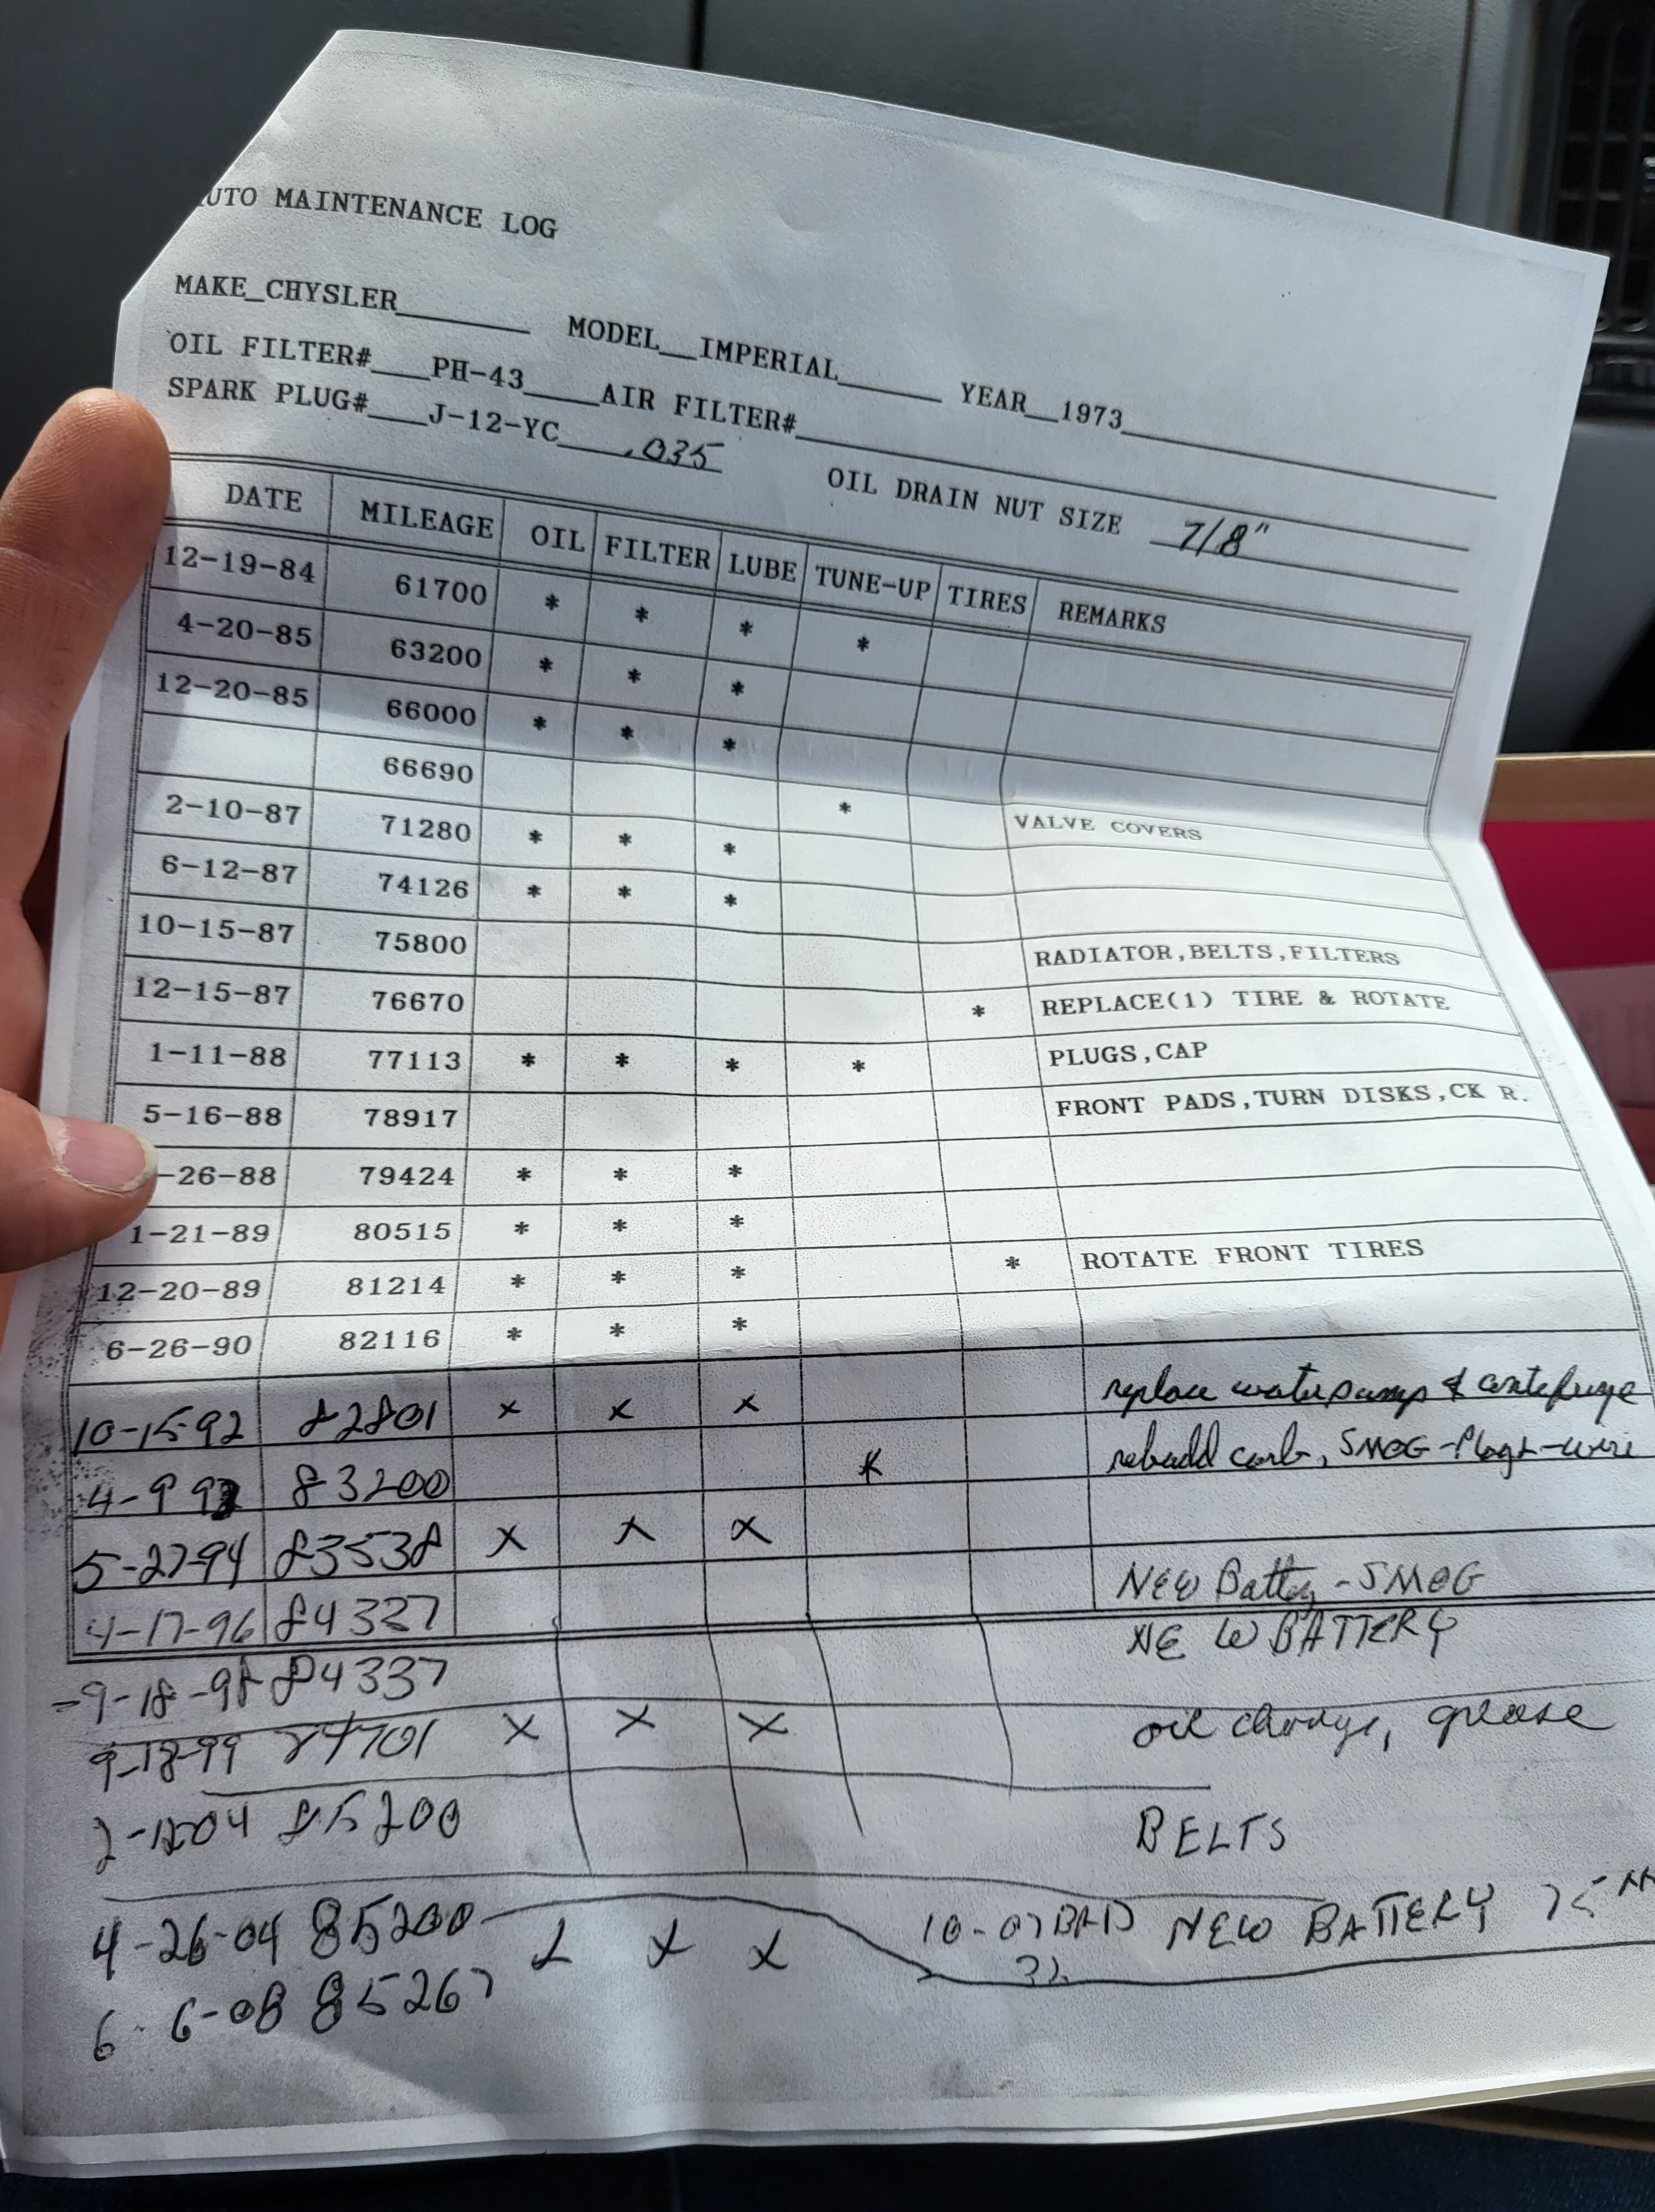 AUTO MAINTENANCE LOG
MAKE_CHYSLER_______ MODEL__IMPERIAL______ YEAR__1973
OIL FILTER#___PH-43____AIR FILTER#
SPARK PLUG#___J-12-YC____.035 OIL DRAIN NUT SIZE 7/8"
DATE MILEAGE OIL FILTER LUBE TUNE-UP TIRES REMARKS
12-19-84 61700 * * * *
4-20-85 63200 * * *
12-20-85 66000 * * *
66690 * VALVE COVERS
2-10-87 71280 * * *
6-12-87 74126 * * *
10-15-87 75800 RADIATOR,BELTS,FILTERS
12-15-87 76670 * REPLACE(1) TIRE & ROTATE
1-11-88 77113 * * * * PLUGS,CAP
5-16-88 78917 FRONT PADS,TURN DISKS,CK R.
-26-88 79424 * * *
1-21-89 80515 * * *
12-20-89 81214 * * * * ROTATE FRONT TIRES
6-26-90 82116 * * *
10-15-92 82801 x x x replace waterpump & centefuge
4-9 93 83200 x rebuild carb, SMOG-Plugs-wire
5-27-94 83538 x x x
4-17-96 84327 NEW Battery - SMOG
-9-18-98 84337 NEW BATTERY
9-18-99 84701 x x x oil change, grease
04 85200 BELTS
4-26-04 85200 x x x 10-07 BAD NEW BATTERY 75
6-6-08 85267